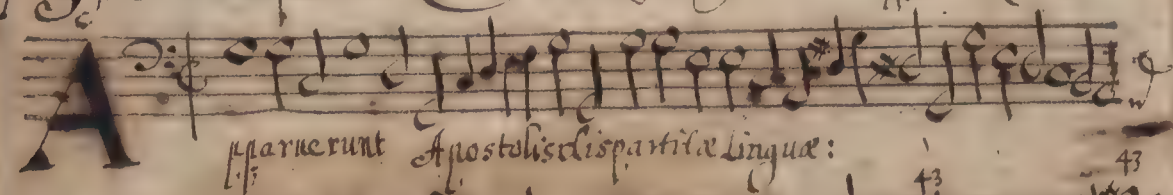 Apparuerunt Apostolis dispartitæ Linguæ:
43 43